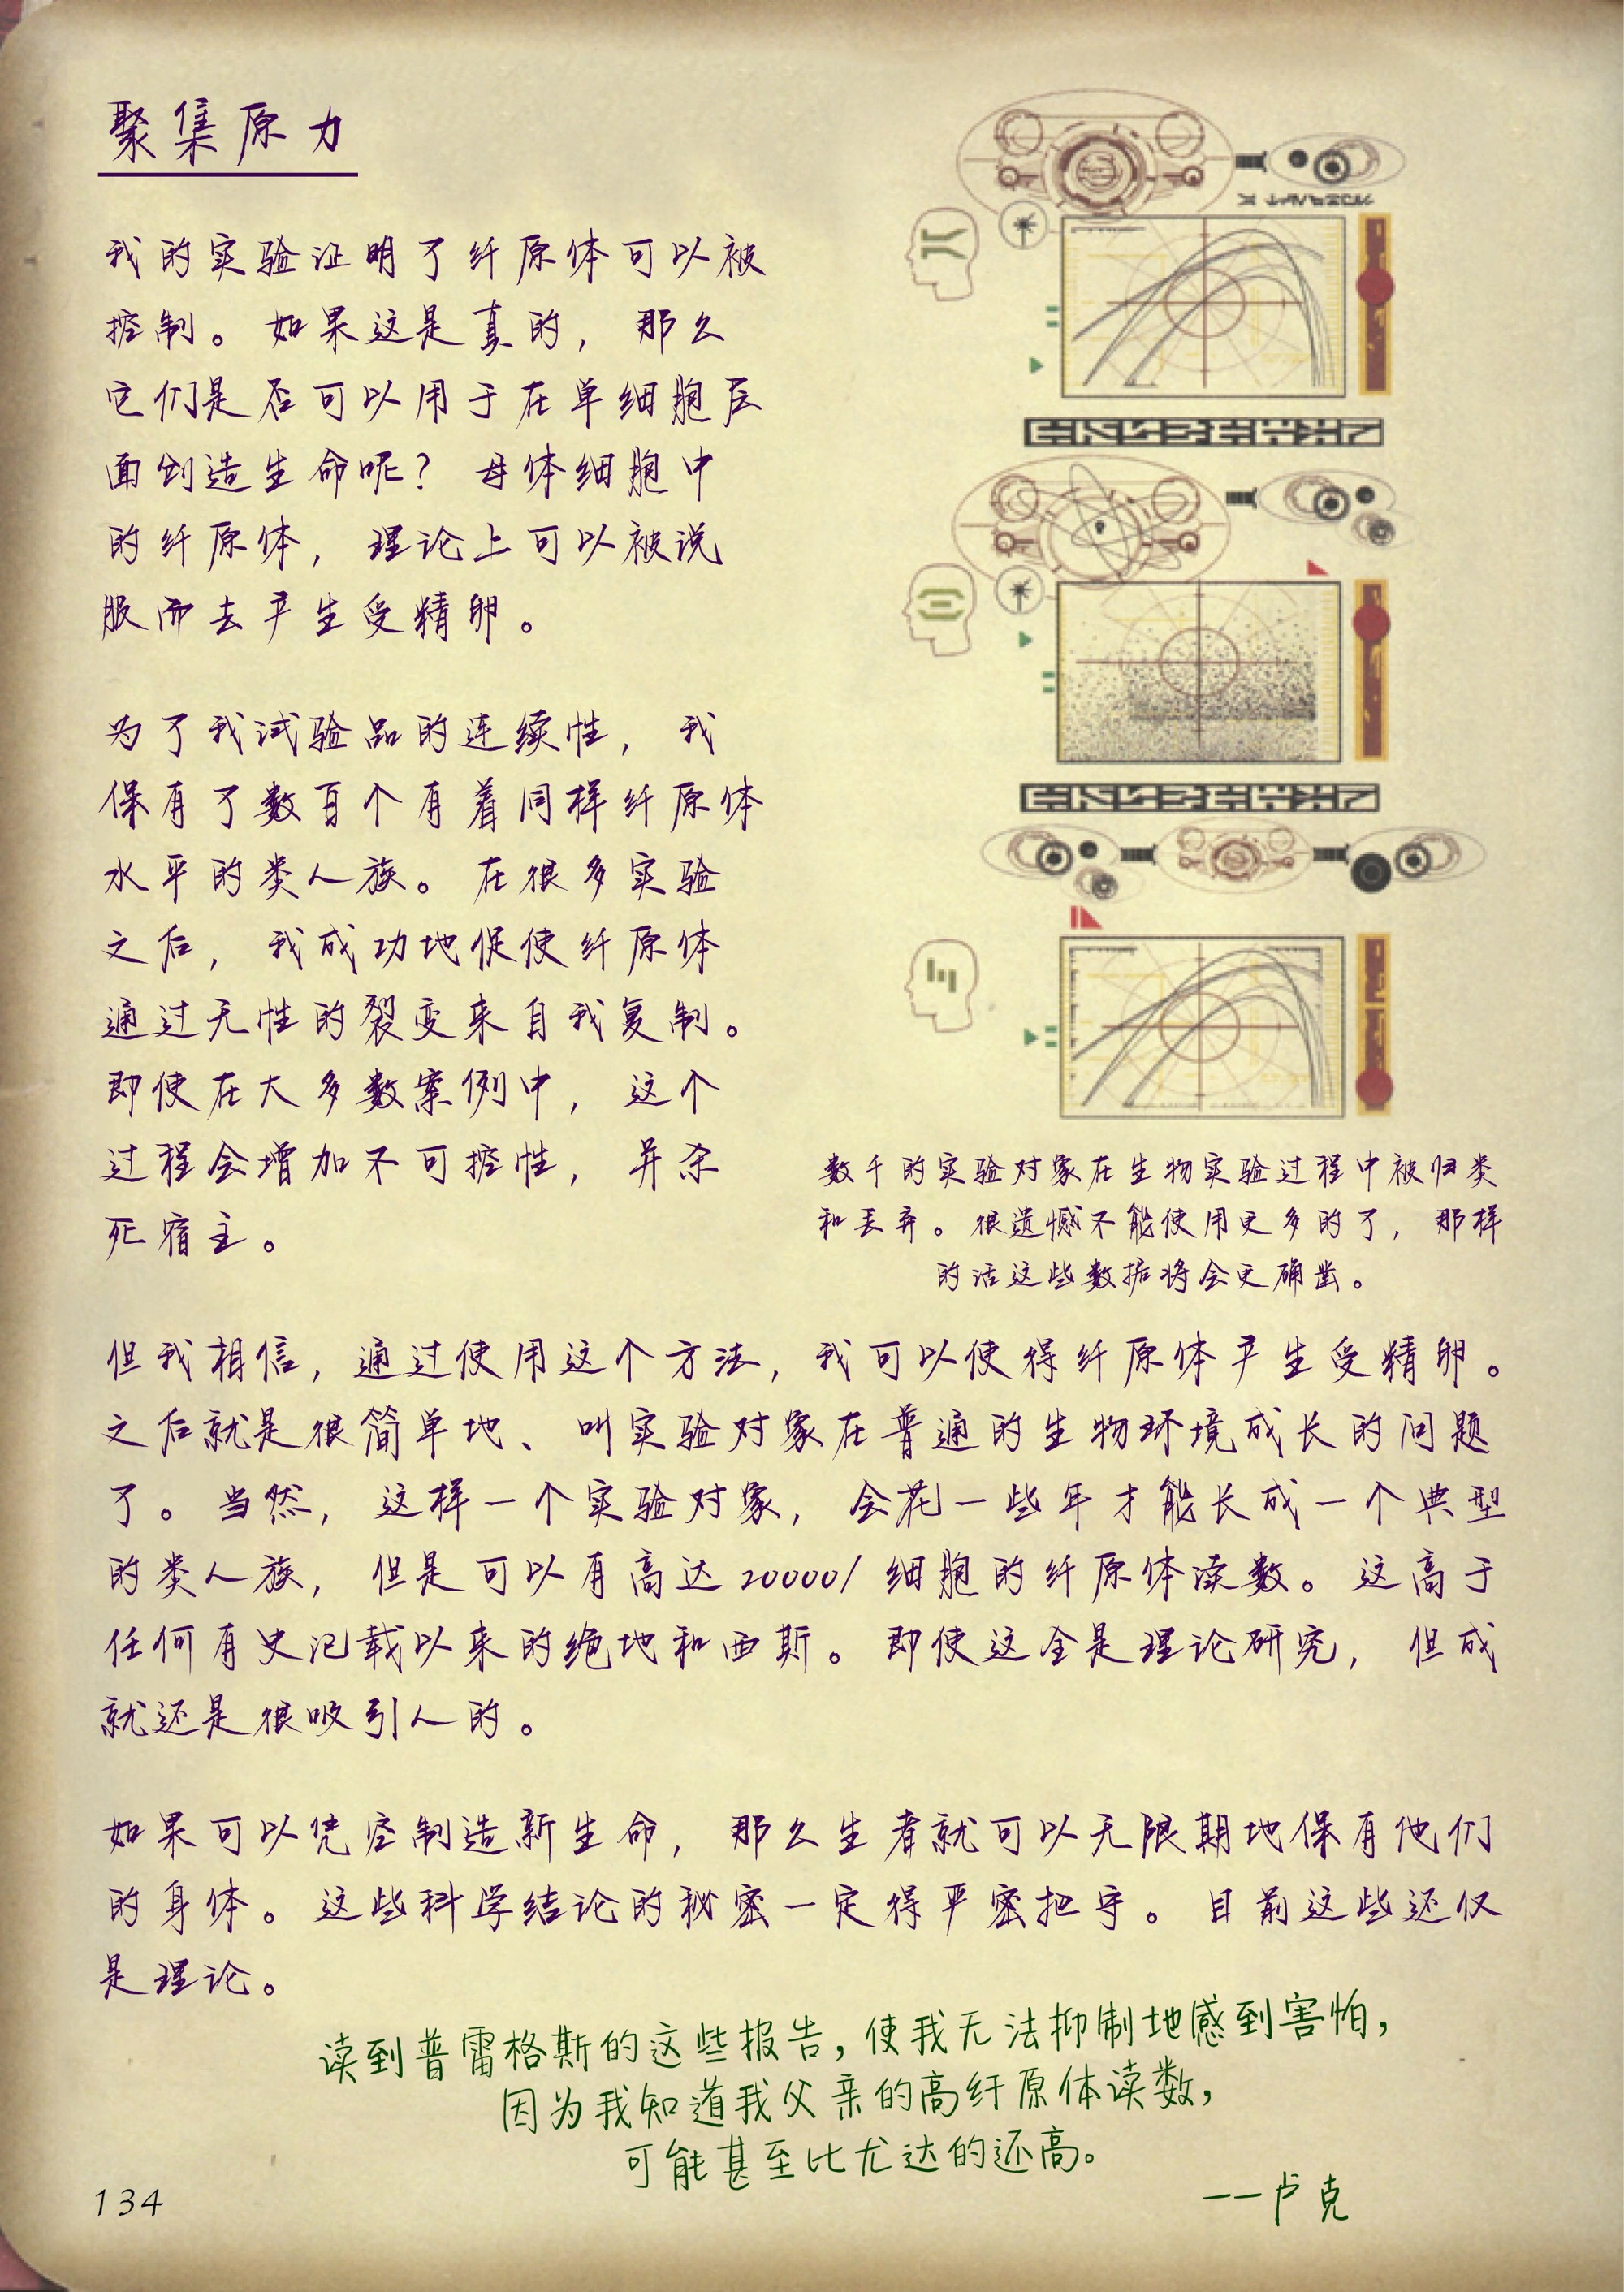 聚集原力
我的实验证明了纤原体可以被
控制。如果这是真的，那么
它们是否可以用于在单细胞层
面创造生命呢？母体细胞中
的纤原体，理论上可以被说
服而去产生受精卵。
为了我试验品的连续性，我
保有了数百个有着同样纤原体
水平的类人族。在很多实验
之后，我成功地促使纤原体
通过无性的裂变来自我复制。
即使在大多数案例中，这个
过程会增加不可控性，并杀
死宿主。
数千的实验对象在生物实验过程中被归类
和丢弃。很遗憾不能使用更多的了，那样
的话这些数据将会更确凿。
但我相信，通过使用这个方法，我可以使得纤原体产生受精卵。
之后就是很简单地、叫实验对象在普通的生物环境成长的问题
了。当然，这样一个实验对象，会花一些年才能长成一个典型
的类人族，但是可以有高达20000/细胞的纤原体读数。这高于
任何有史记载以来的绝地和西斯。即使这全是理论研究，但成
就还是很吸引人的。
如果可以凭空制造新生命，那么生者就可以无限期地保有他们
的身体。这些科学结论的秘密一定得严密把守。目前这些还仅
是理论。
读到普雷格斯的这些报告，使我无法抑制地感到害怕，
因为我知道我父亲的高纤原体读数，
可能甚至比尤达的还高。
——卢克
134